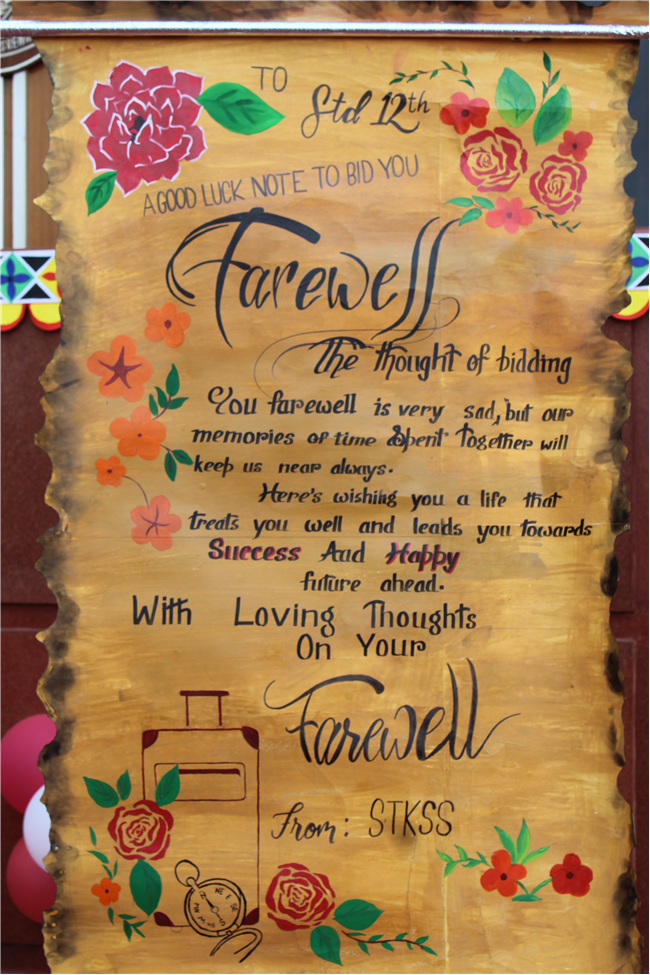 TO
Std 12th
A GOOD LUCK NOTE TO BID YOU
Farewell
The thought of bidding
You farewell is very sad, but our
memories of time Spent Together will
keep us near always.
Here's wishing you a life that
treats you well and leads you towards
Success And Happy
future ahead.
With Loving Thoughts
On Your
Farewell
From: STKSS